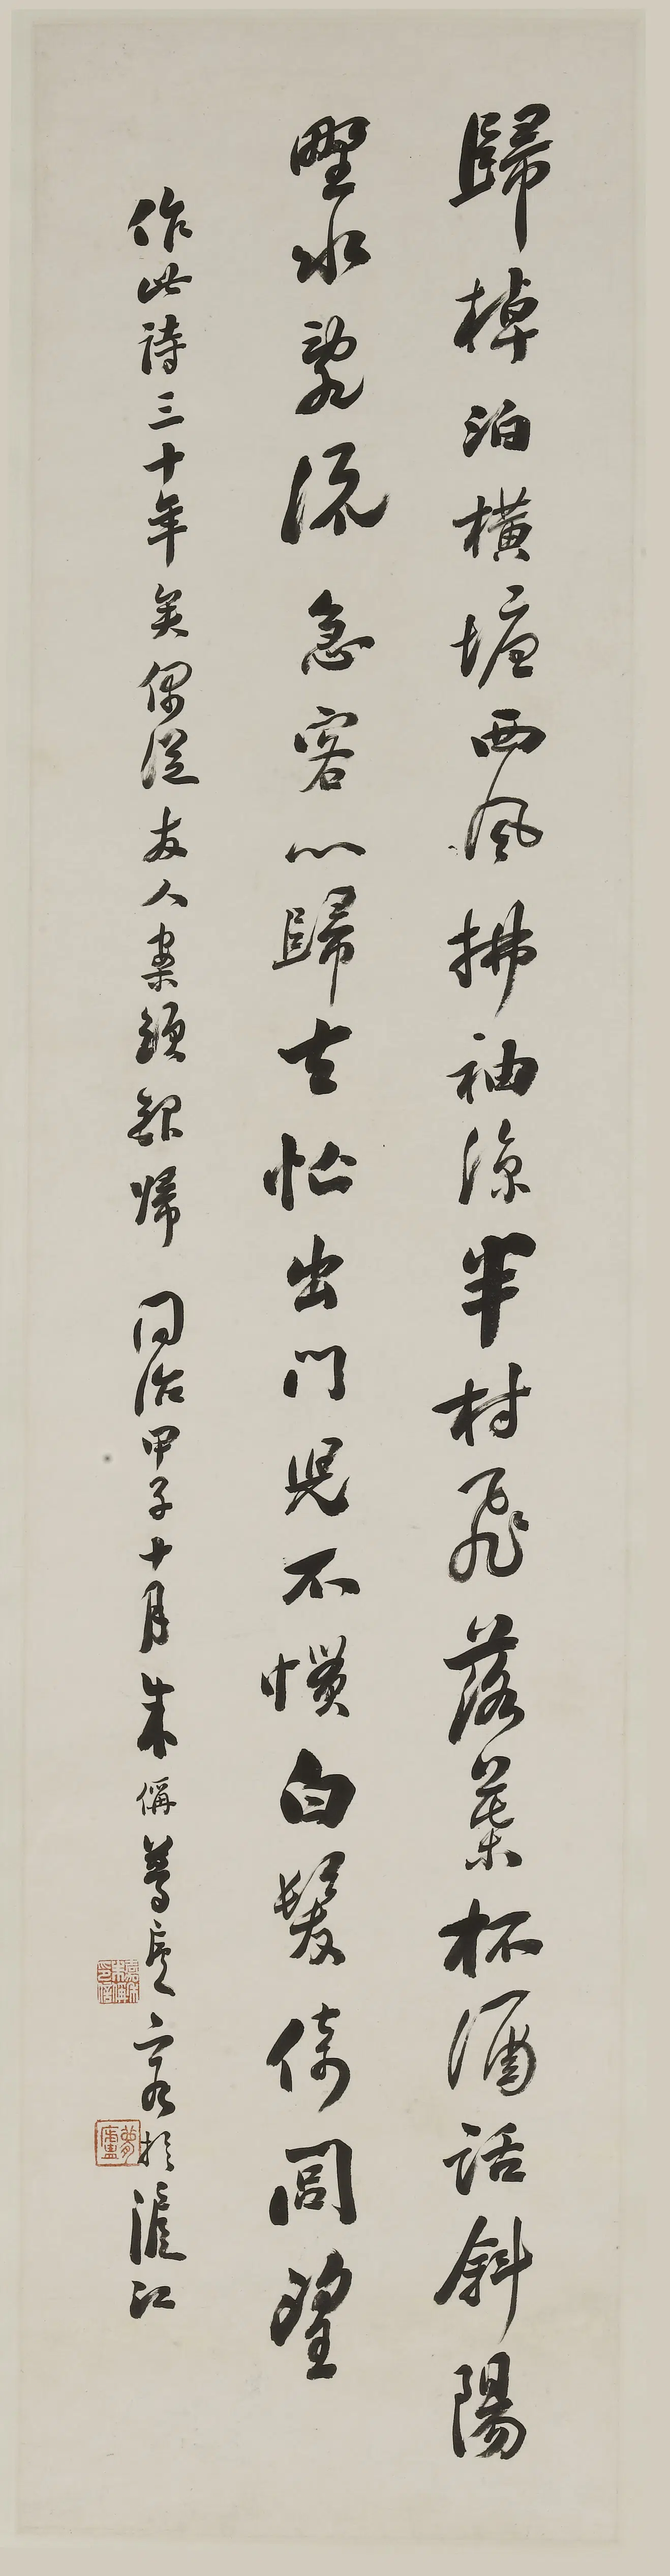 歸棹泊橫塘西風拂袖涼半村飛落葉杯酒話斜陽
野水亂流急客心歸去忙出門兒不慣白髮倚閭望
作此詩三十年矣偶從友人案頭歸同治甲子十月朱偁夢廬客於滬江
夢廬